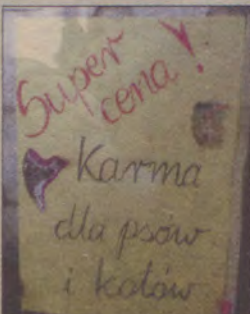 Super
cena!
Karma
dla psów
i kotów